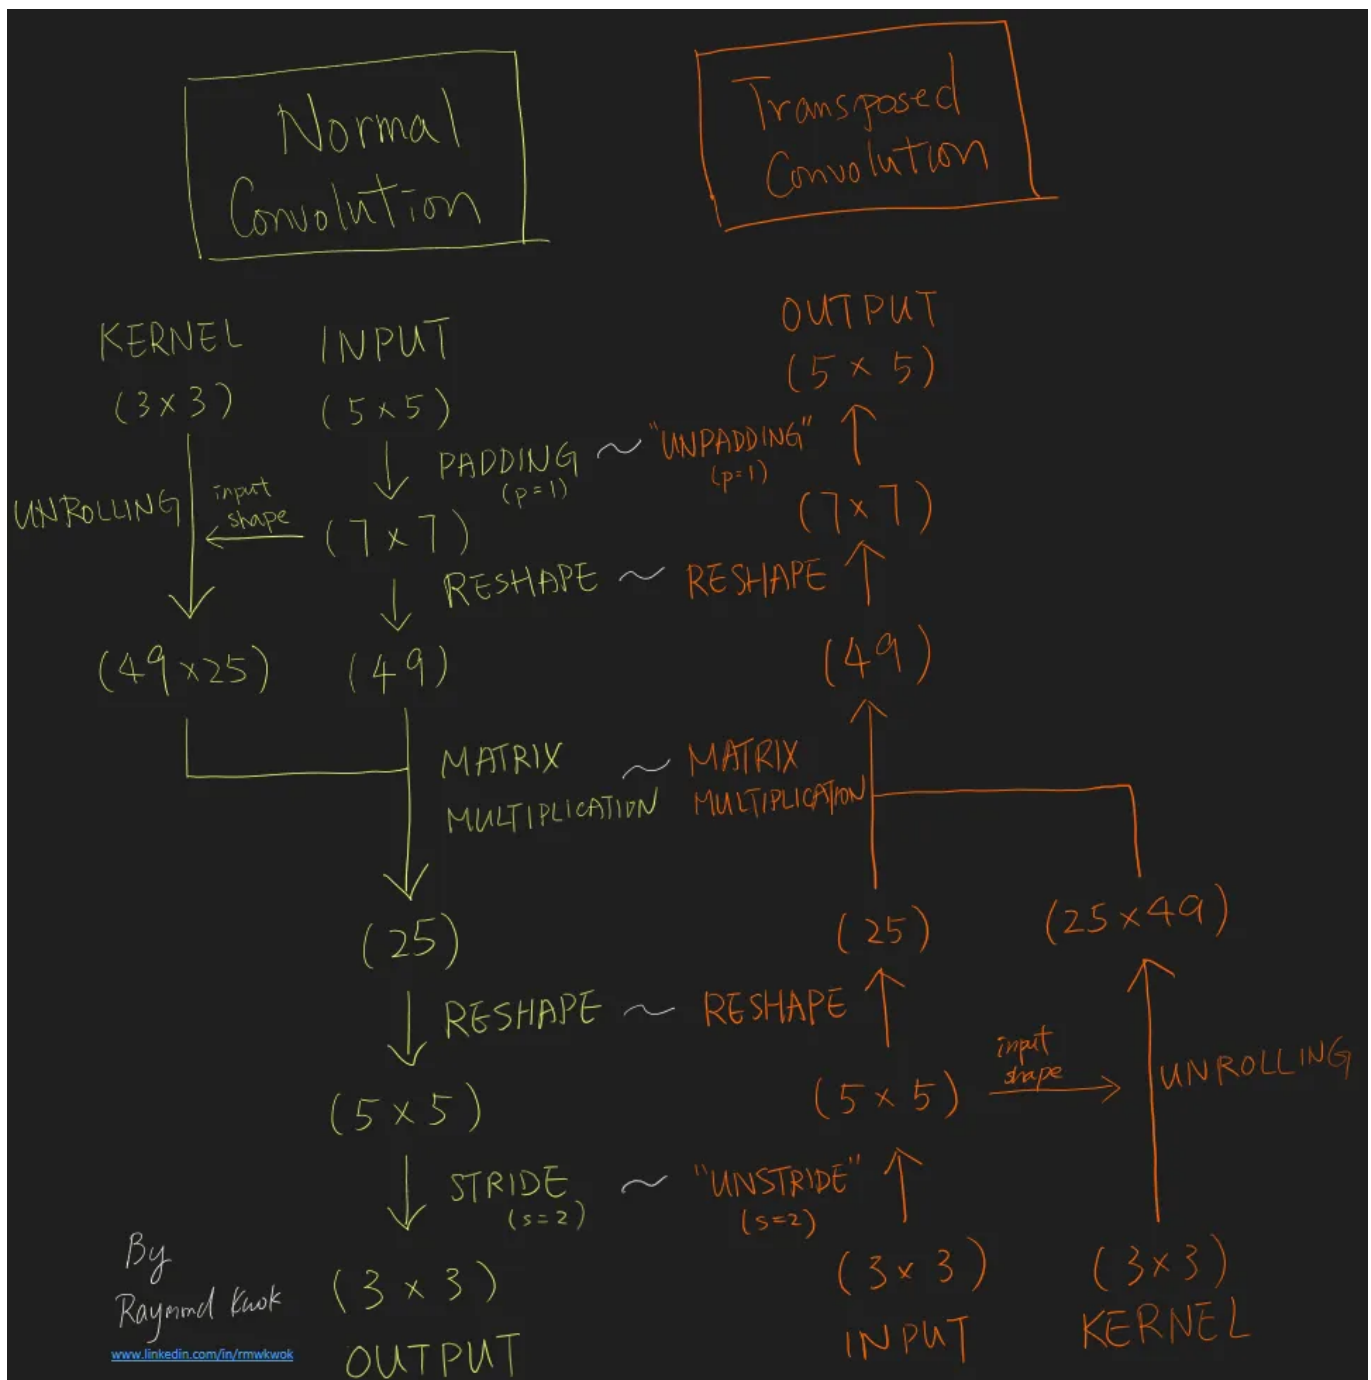 Normal
Convolution
Transposed
Convolution
KERNEL
(3×3)
INPUT
(5×5)
OUTPUT
(5×5)
PADDING ~ "UNPADDING"
(p=1) (p=1)
UNROLLING
input
shape
(7×7)
(7×7)
RESHAPE ~ RESHAPE
(49×25)
(49)
(49)
MATRIX ~ MATRIX
MULTIPLICATION MULTIPLICATION
(25)
(25)
(25×49)
RESHAPE ~ RESHAPE
(5×5)
(5×5)
input
shape
UNROLLING
STRIDE ~ "UNSTRIDE"
(s=2) (s=2)
(3×3)
OUTPUT
(3×3)
INPUT
(3×3)
KERNEL
By
Raymond Kwok
www.linkedin.com/in/rmwkwok